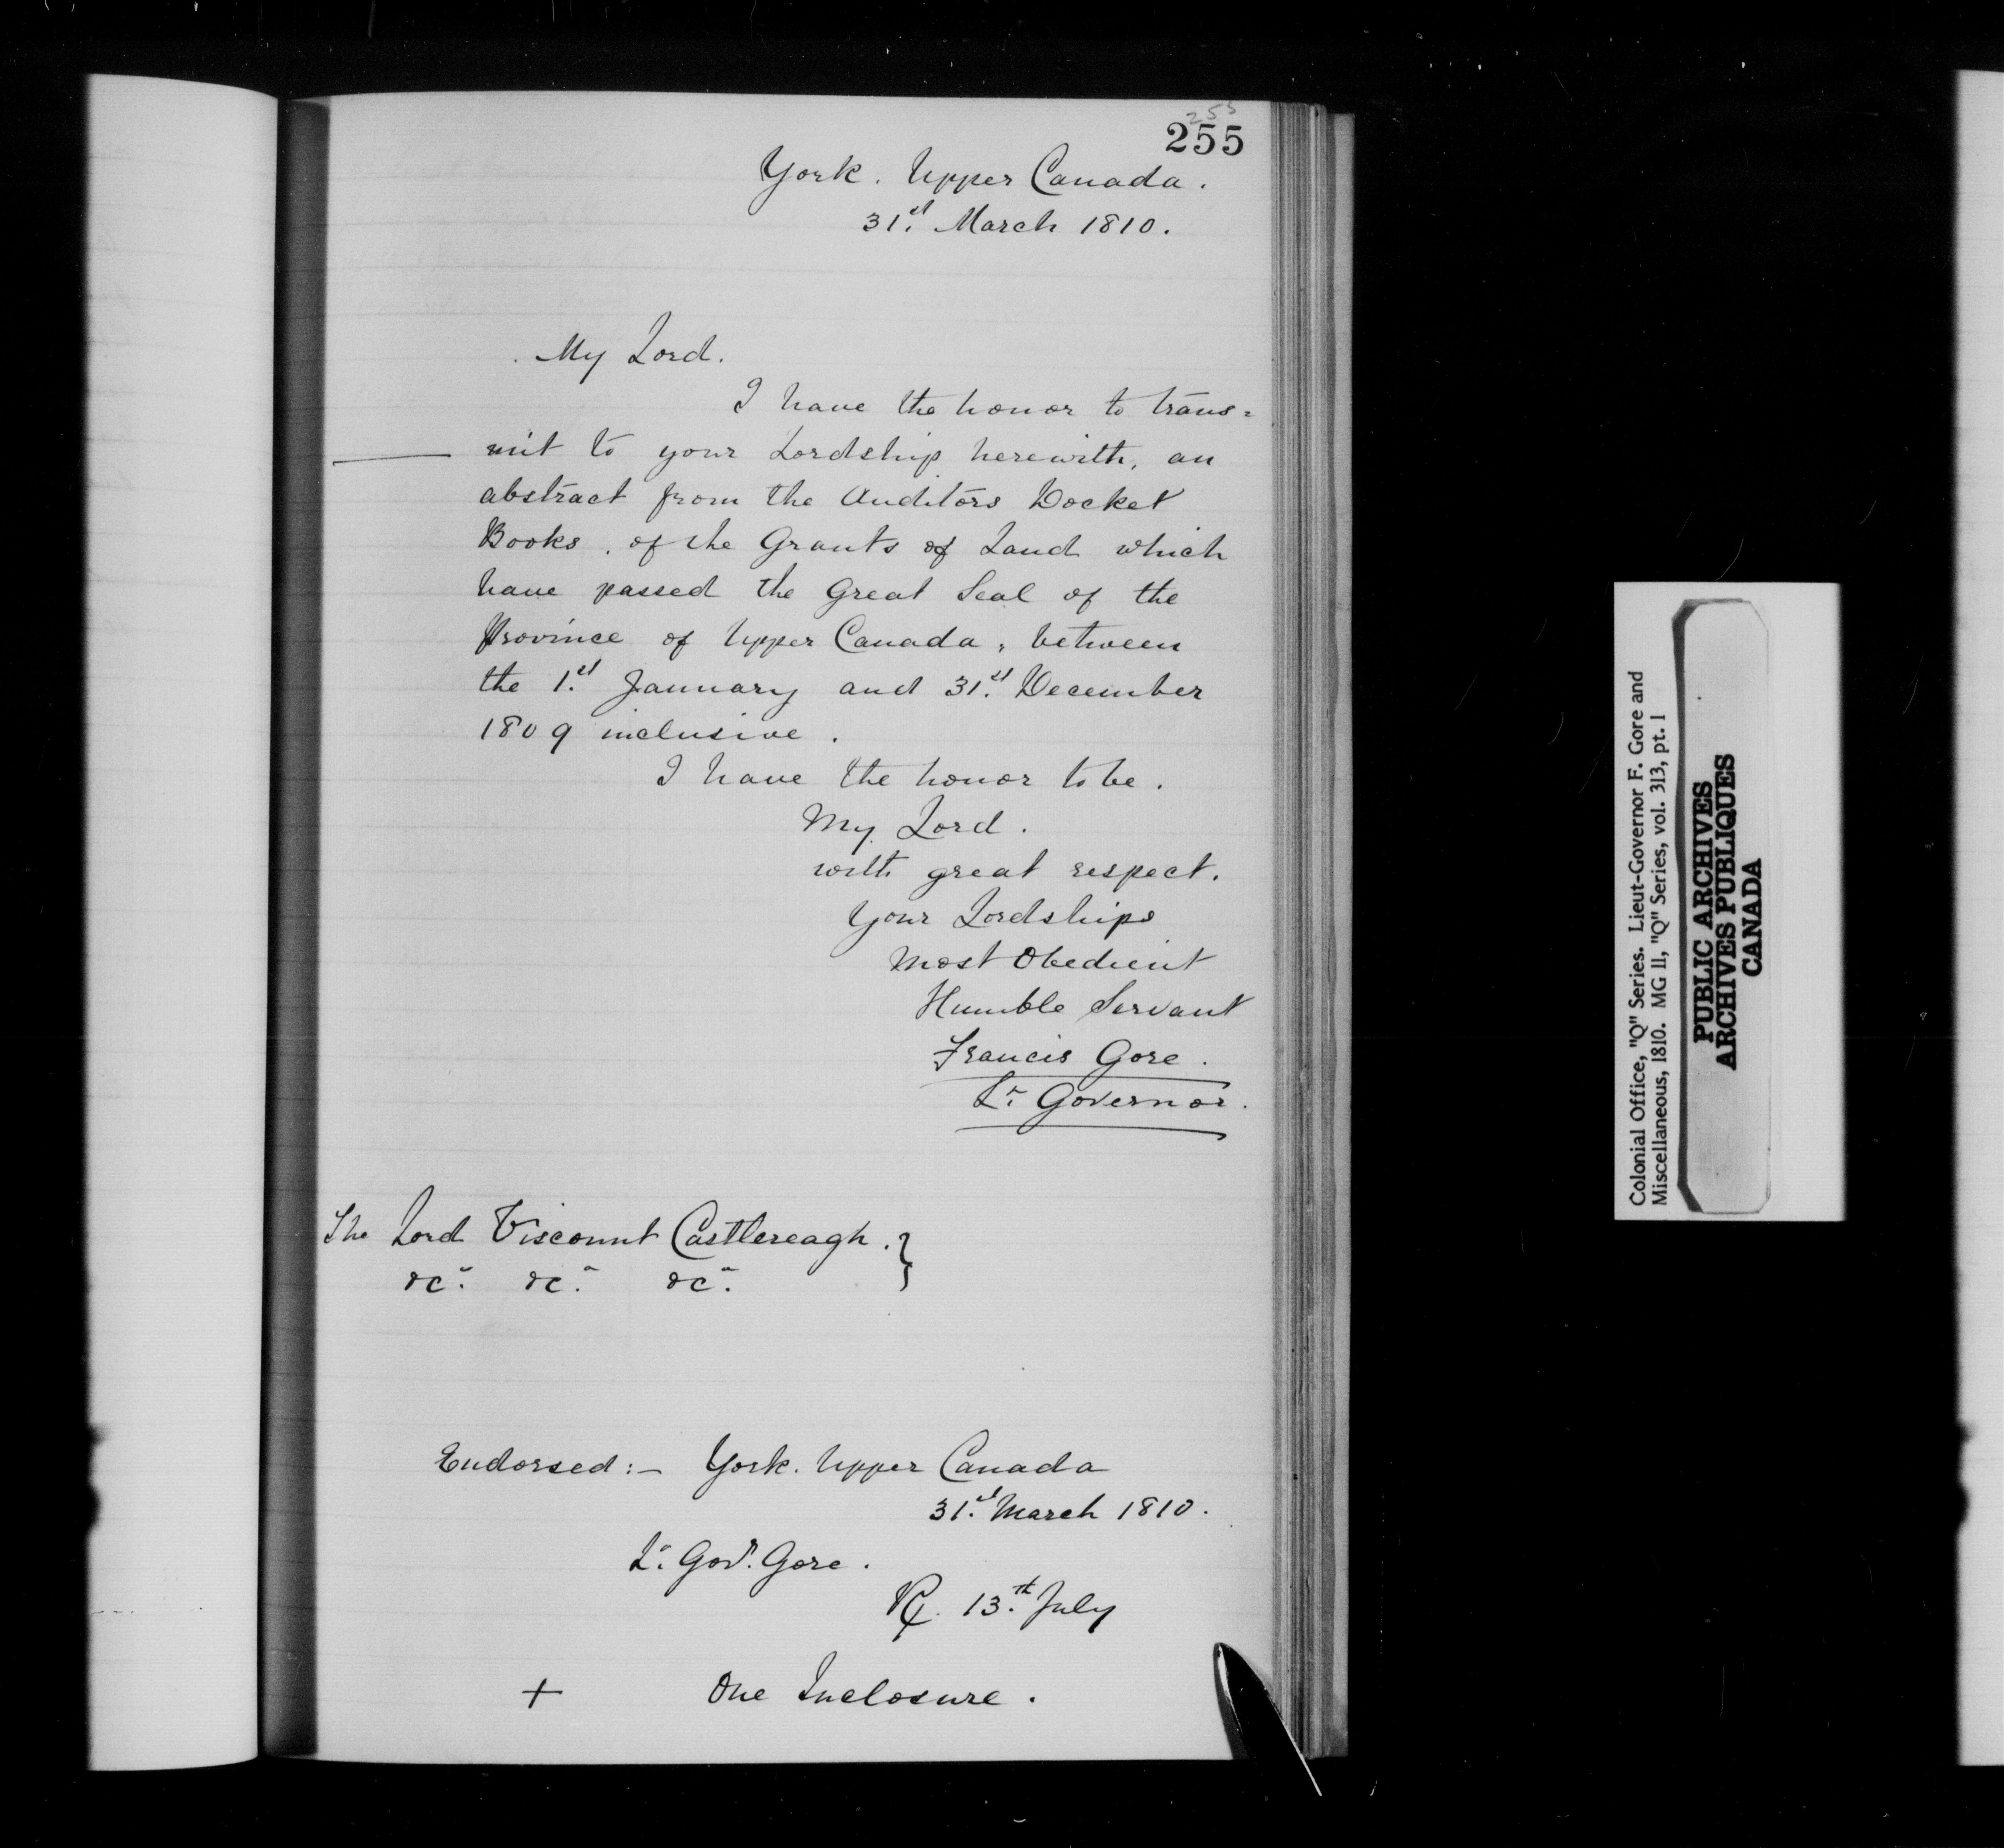 255
255
York. Upper Canada.
31.st March 1810.
My Lord.
I have the honor to trans=
mit to your Lordship herewith, an
abstract from the Auditors Docket
Books, of the Grants of Land which
have passed the Great Seal of the
Province of Upper Canada, between
the 1.st January and 31.st December
1809 inclusive.
I have the honor to be.
My Lord.
with great respect.
Your Lordships
Most Obedient
Humble Servant
Francis Gore.
Lt. Governor.
The Lord Viscount Castlereagh. }
&c. &c. &c.
Endorsed:- York. Upper Canada
31.st March 1810.
Lt. Govr. Gore.
13.th July
+ One Inclosure.
Colonial Office, "Q" Series. Lieut-Governor F. Gore and
Miscellaneous, 1810. MG 11, "Q" Series, vol. 313, pt. 1
PUBLIC ARCHIVES
ARCHIVES PUBLIQUES
CANADA